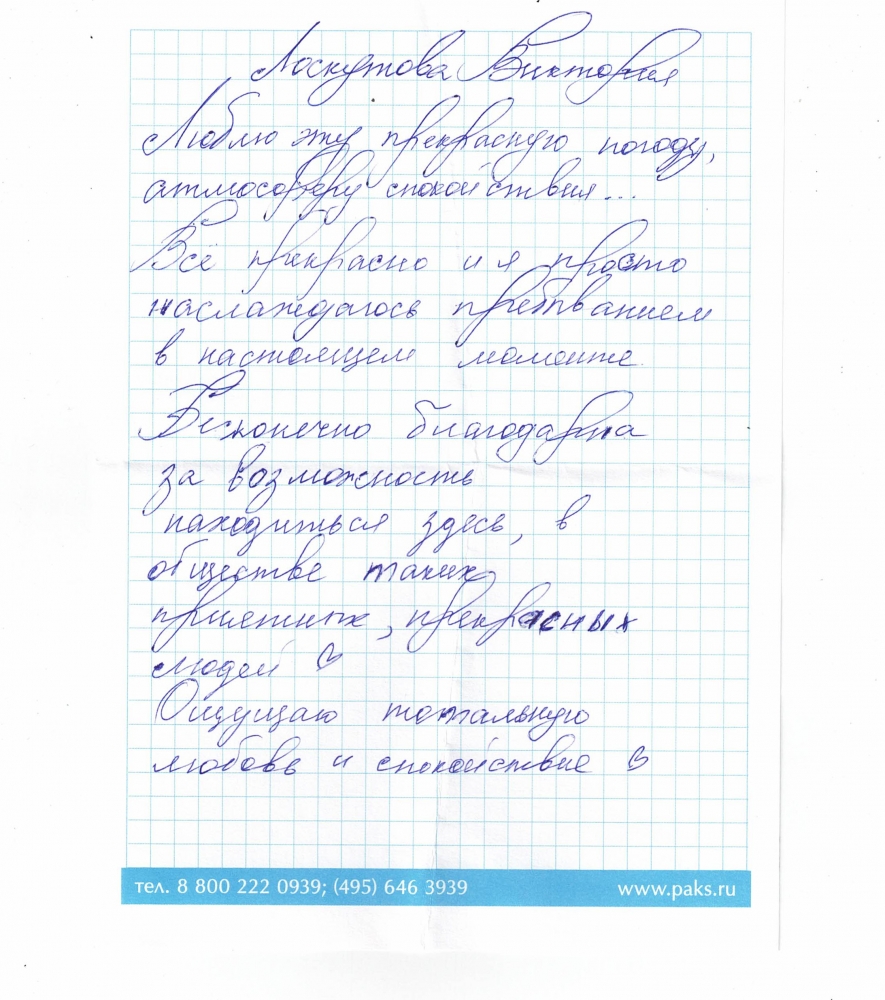 Лоскутова Виктория
Люблю эту прекрасную погоду,
атмосферу спокойствия...
Всё прекрасно и я просто
наслаждаюсь пребыванием
в настоящем моменте
Бесконечно благодарна
за возможность
находиться здесь, в
обществе таких
приятных, прекрасных
людей ♡
Ощущаю тотальную
любовь и спокойствие ♡
тел. 8 800 222 0939; (495) 646 3939 www.paks.ru